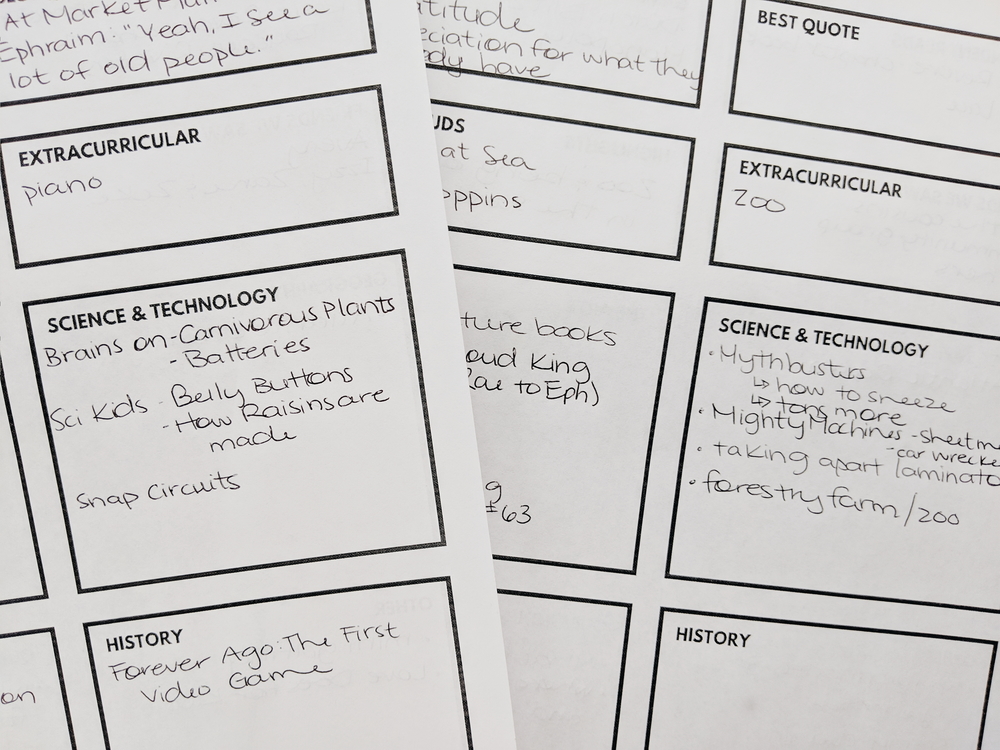 At Market
Ephraim: "Yeah, I see a
lot of old people."
EXTRACURRICULAR
piano
SCIENCE & TECHNOLOGY
Brains on - Carnivorous Plants
- Batteries
Sci Kids - Belly Buttons
- How Raisins are
made
Snap Circuits
HISTORY
Forever Ago: The First
Video Game
on
for what they
have
at Sea
books
King
to Eph)
g
63
BEST QUOTE
EXTRACURRICULAR
Zoo
SCIENCE & TECHNOLOGY
• Mythbusters
↳ how to sneeze
↳ tons more
• Mighty Machines - sheet m
- car wrecke
• taking apart laminato
• forestry farm/zoo
HISTORY